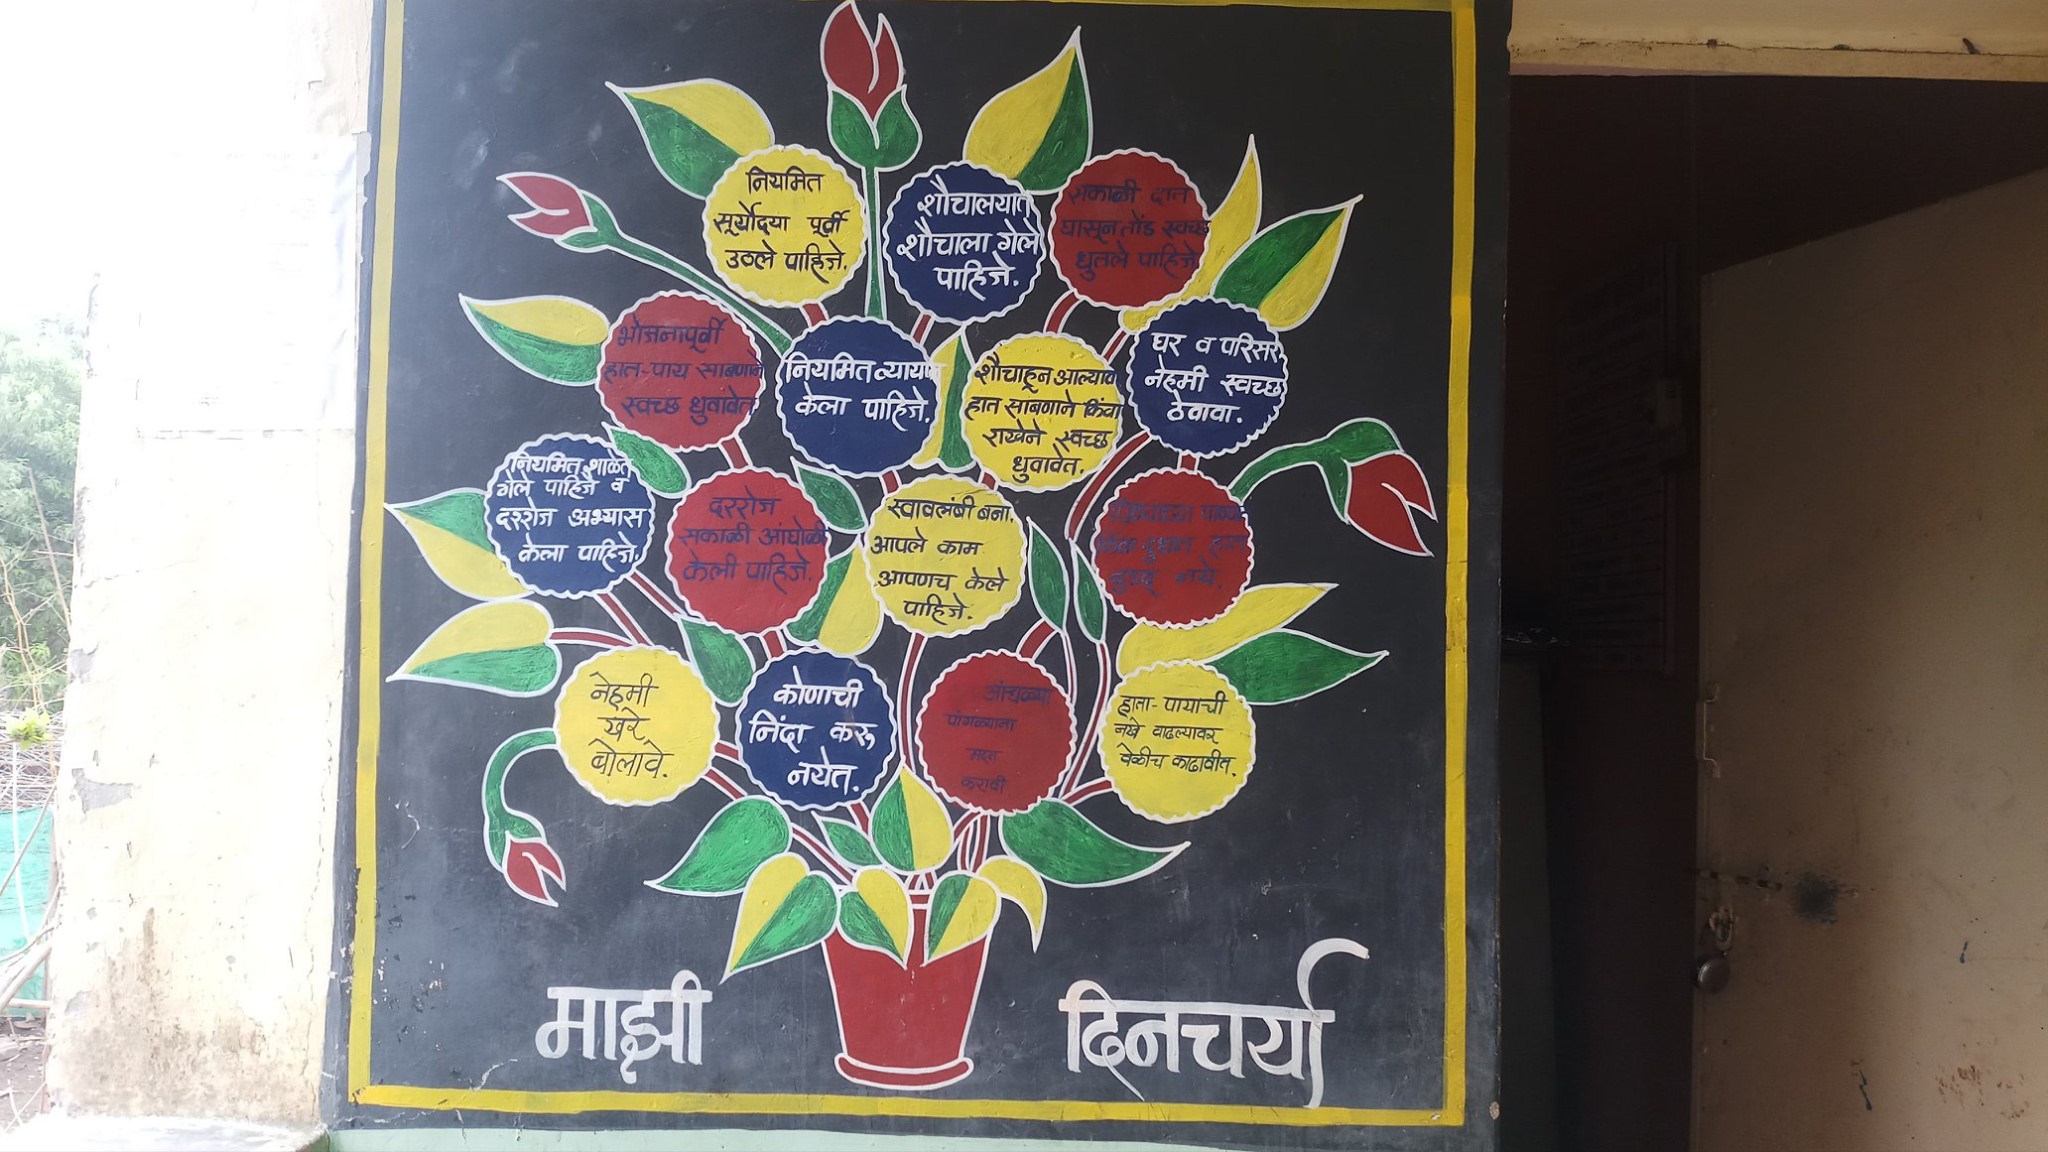 नियमित
सूर्योदया पूर्वी
उठले पाहिजे.
शौचालयात
शौचाला गेले
पाहिजे.
सकाळी दात
घासून तोंड स्वच्छ
धुतले पाहिजे.
भोजनापूर्वी
हात-पाय साबणाने
स्वच्छ धुवावेत
नियमित व्यायाम
केला पाहिजे.
शौचाहून आल्यावर
हात साबणाने किंवा
राखेने स्वच्छ
धुवावेत.
घर व परिसर
नेहमी स्वच्छ
ठेवावा.
नियमित शाळेत
गेले पाहिजे व
दररोज अभ्यास
केला पाहिजे.
दररोज
सकाळी आंघोळ
केली पाहिजे.
स्वावलंबी बना.
आपले काम
आपणच केले
पाहिजे.
पाण्यात
हात
नये.
नेहमी
खरे
बोलावे.
कोणाची
निंदा करू
नयेत.
आंधळ्या
पांगळ्याना
मदत
करावी
हाता-पायाची
नखे वाढल्यावर
वेळीच काढावीत.
माझी दिनचर्या